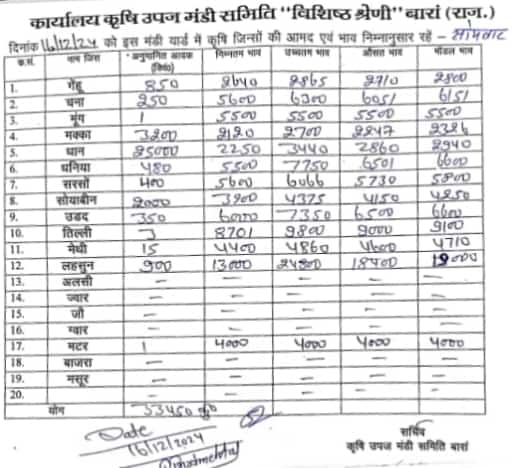 कार्यालय कृषि उपज मंडी समिति "विशिष्ठ श्रेणी" बारां (राज.)
दिनांक 16/12/24 को इस मंडी यार्ड में कृषि जिन्सों की आमद एवं भाव निम्नानुसार रहें - सोमवार
क्र.सं. नाम जिंस अनुमानित आवक (क्विं0) निम्नतम भाव उच्चतम भाव औसत भाव मॉडल भाव
1. गेंहू 850 2640 2865 2710 2800
2. चना 250 5600 6300 6051 6151
3. मूंग 1 5500 5500 5500 5500
4. मक्का 3200 2120 2700 2247 2326
5. धान 25000 2250 3440 2860 2940
6. धनिया 480 5500 7750 6501 6600
7. सरसों 400 5600 6066 5730 5800
8. सोयाबीन 2000 3900 4375 4150 4250
9. उडद 350 6000 7350 6500 6600
10. तिल्ली 3 8701 9800 9000 9100
11. मेथी 15 4400 4860 4600 4710
12. लहसुन 900 13000 24800 18400 19000
13. अलसी - - - - -
14. ज्वार - - - - -
15. जौ - - - - -
16. ग्वार - - - - -
17. मटर 1 4000 4000 4000 4000
18. बाजरा - - - - -
19. मसूर - - - - -
20. - - - - -
योग 33450 कु०
Date
16/12/2024
सचिव
कृषि उपज मंडी समिति बारां